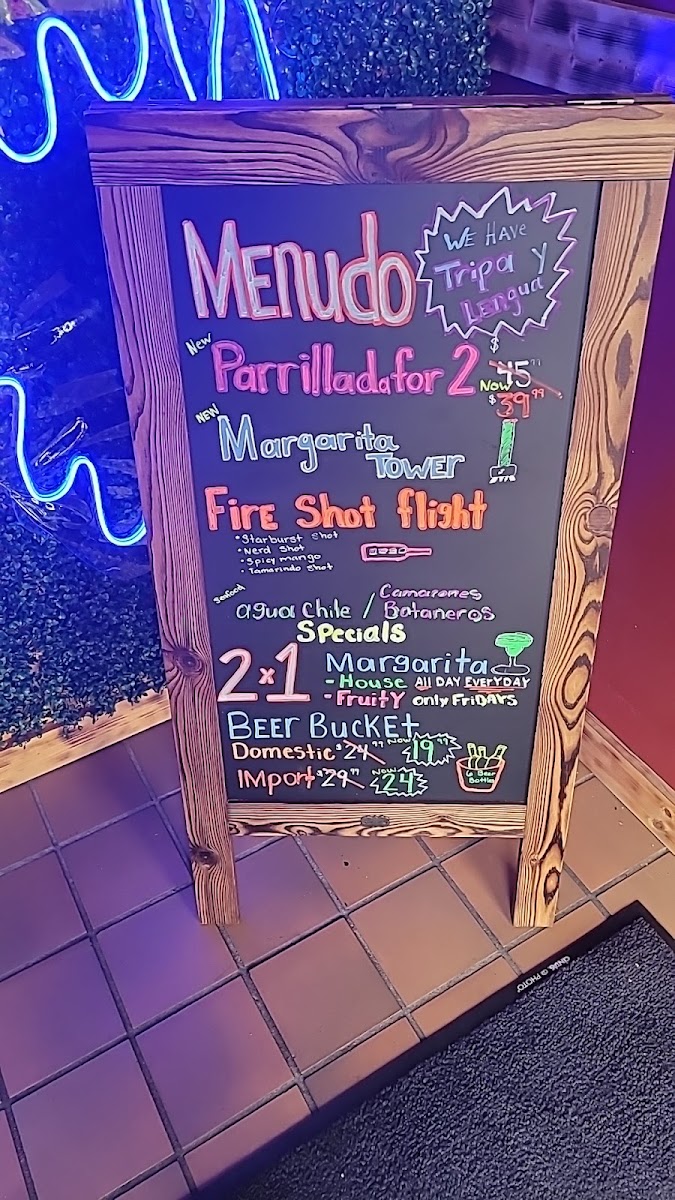 Menudo
WE HAVE
Tripa y
Lengua
New
Parrillada for 2
$45.99
Now
$39.99
NEW
Margarita
TOWER
Fire Shot flight
• Starburst Shot
• Nerd Shot
• Spicy mango
• Tamarindo Shot
Seafood
agua Chile / Camarones
Botaneros
Specials
2x1 Margarita
- House All DAY EVERYDAY
- Fruity only FriDAYs
BEER BUCKET
Domestic $24.99 Now 19.99
IMport $29.99 Now 24.99
6 Beer
Bottles